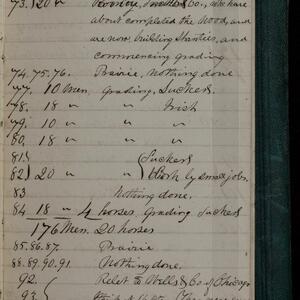 73. 120 "
about completed the Wood, and
are now building Shanties, and
commencing grading
74. 75. 76. Prairie, Nothing done
77. 10 Men. Grading. Suckers.
78. 18 " " Irish
79. 10 " " "
80. 18 " " "
81} {Suckers
82} 20 " {Work by small jobs.
83 Nothing done.
84 18 " 4 horses. Grading. Suckers
176 Men. 20 horses
85. 86. 87. Prairie
88. 89. 90. 91. Nothing done.
92. Relet to Wells & Co of Chicago
93.